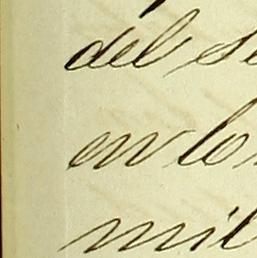 del se
en lo
mil